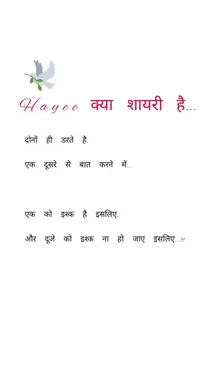 Hayee क्या शायरी है...
दोनों ही डरते है.
एक दूसरे से बात करने में...
एक को इश्क है इसलिए.
और दूजे को इश्क ना हो जाए इसलिए...!!